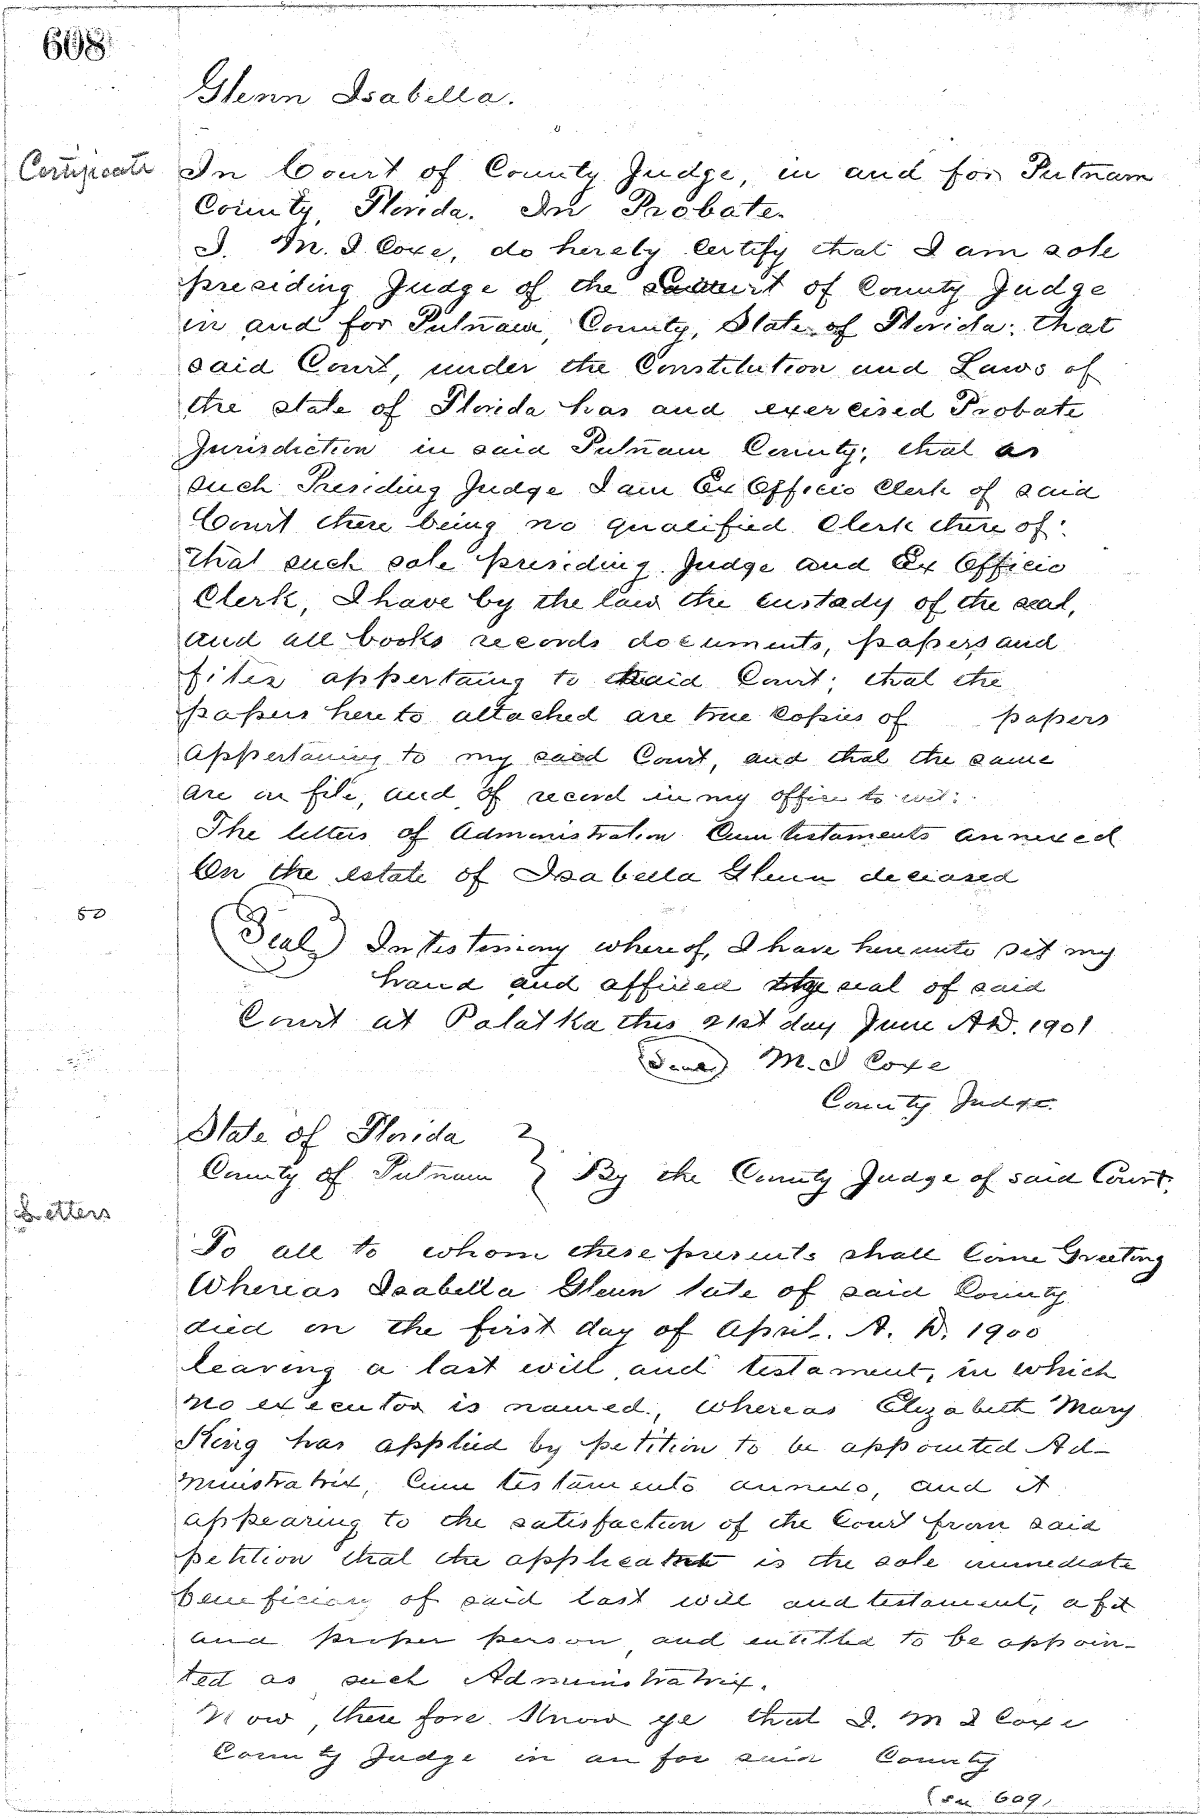 608
Glenn Isabella.
Certificate
In Court of County Judge, in and for Putnam
County, Florida. In Probate.
I. M. I Coxe, do hereby certify that I am sole
presiding Judge of the Court of County Judge
in and for Putnam, County, State of Florida: that
said Court, under the Constitution and Laws of
the state of Florida has and exercised Probate
Jurisdiction in said Putnam County; that as
such Presiding Judge I am Ex Officio Clerk of said
Court there being no qualified Clerk there of:
that such sole presiding Judge and Ex Officio
Clerk, I have by the law the custady of the seal,
and all books records documents, papers and
files appertaing to said Court; that the
papers here to attached are true copies of papers
appertaining to my said Court, and that the same
are on file, and of record in my office to wit:
The letters of Administration Cum testaments annexed
On the estate of Isabella Glenn deceased
50
Seal
In testimony whereof, I have here unto set my
hand and affixed the seal of said
Court at Palatka this 21st day June A.D. 1901
Seal M. I Coxe
County Judge.
State of Florida
County of Putnam } By the County Judge of said Court.
Letters
To all to whom these presents shall Come Greeting
Whereas Isabella Glenn late of said County
died on the first day of April. A. D. 1900
leaving a last will and testament, in which
no executor is named, whereas Elizabeth Mary
King has applied by petition to be appointed Ad-
ministratrix, Cum testamento annexo, and it
appearing to the satisfaction of the Court from said
petition that the applicant is the sole immediate
beneficiary of said last will and testament, a fit
and proper person, and entitled to be appoin-
ted as such Administratrix.
Now, there fore Know ye that I. M I Coxe
County Judge in an for said County
(see 609)